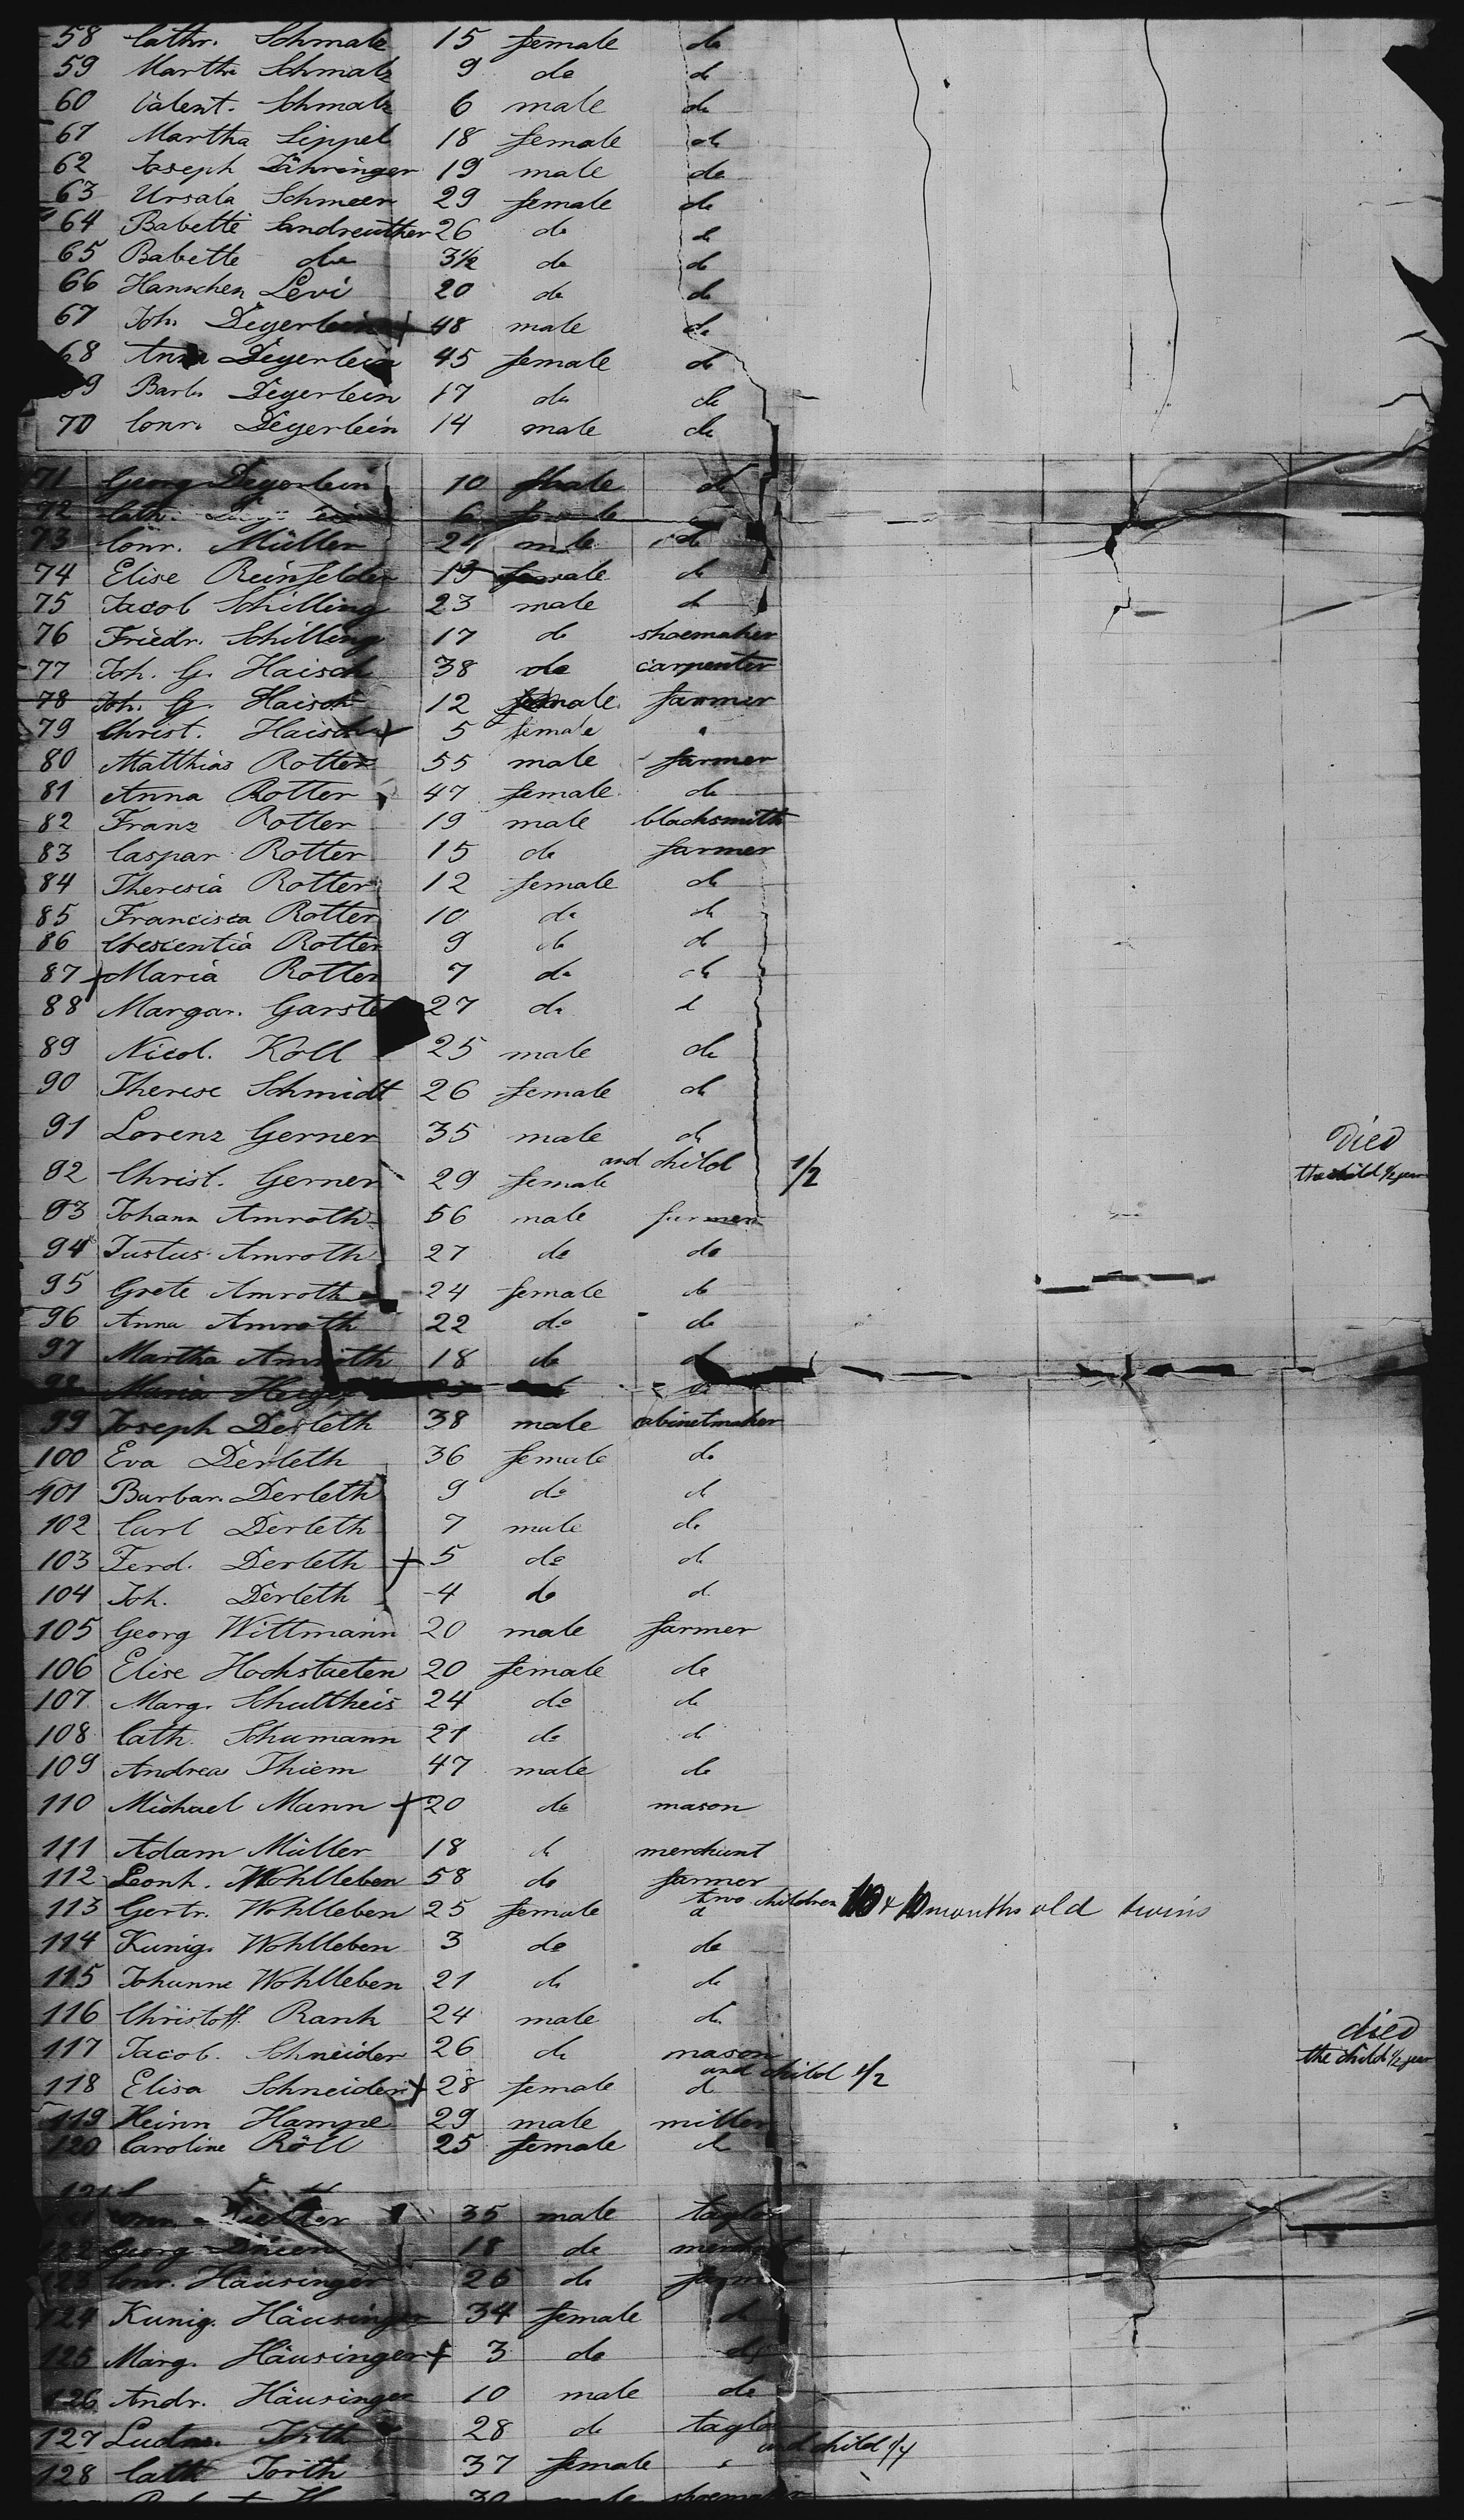 58 Cathr. Schmalz 15 female do
59 Martha Schmalz 9 do do
60 Valent. Schmalz 6 male do
61 Martha Lippel 18 female do
62 Joseph Döhringer 19 male do
63 Ursala Schmeer 29 female do
64 Babette Landreuther 26 do do
65 Babette do 3 1/2 do do
66 Hannchen Levi 20 do do
67 Joh. Degerlein + 48 male do
68 Anna Degerlein 45 female do
69 Barb. Degerlein 17 do do
70 Conr. Degerlein 14 male do
71 Georg Degerlein 10 male do
72 Cath. 6
73 Conr. Müller 24 male do
74 Elise Reinfelder 19 female do
75 Jacob Schilling 23 male do
76 Friedr. Schilling 17 do shoemaker
77 Joh. G. Haisch 38 do carpenter
78 Joh. G. Haisch 12 male farmer
79 Christ. Haisch + 5 female "
80 Matthias Rotter 55 male farmer
81 Anna Rotter 47 female do
82 Franz Rotter 19 male blacksmith
83 Caspar Rotter 15 do farmer
84 Theresia Rotter 12 female do
85 Francisca Rotter 10 do do
86 Chescentia Rotter 9 do do
87 + Maria Rotter 7 do do
88 Margar. 27 do do
89 Nicol. Koll 25 male do
90 Therese Schmidt 26 female do
91 Lorenz Gerner 35 male do died
and child 1/2 the child 1/2 year
92 Christ. Gerner 29 female
93 Johann Amroth 56 male farmer
94 Justus Amroth 27 do do
95 Grete Amroth 24 female do
96 Anna Amroth 22 do do
97 Martha Amroth 18 do do
98 Maria do
99 Joseph Derleth 38 male cabinetmaker
100 Eva Derleth 36 female do
101 Barbar. Derleth 9 do do
102 Carl Derleth 7 male do
103 Ferd. Derleth + 5 do do
104 Joh. Derleth 4 do do
105 Georg Wittmann 20 male farmer
106 Elise Hochstaeten 20 female do
107 Marg. Schultheis 24 do do
108 Cath. Schumann 21 do do
109 Andreas Thiem 47 male do
110 Michael Mann + 20 do mason
111 Adam Müller 18 do merchant
112 Leonh. Wohlleben 58 do farmer
two children 10 & 10 months old twins
113 Gertr. Wohlleben 25 female d
114 Kunig. Wohlleben 3 do do
115 Johanne Wohlleben 21 do do
116 Christoff Rank 24 male do died
117 Jacob Schneider 26 do mason the child 1/2 year
and child 1/2
118 Elisa Schneider + 28 female d
119 Heinr. Hampe 29 male miller
120 Caroline Röll 25 female do
121
35 male taylor
122 Georg 18 do
123 Conr. Häusinger 26 do farmer
124 Kunig. Häusinger 34 female do
125 Marg. Häusinger + 3 do do
126 Andr. Häusinger 10 male do
127 Ludw. Jörth 28 do taylor
and child 1/4
128 Cath Jörth 37 female "
30 male shoemaker